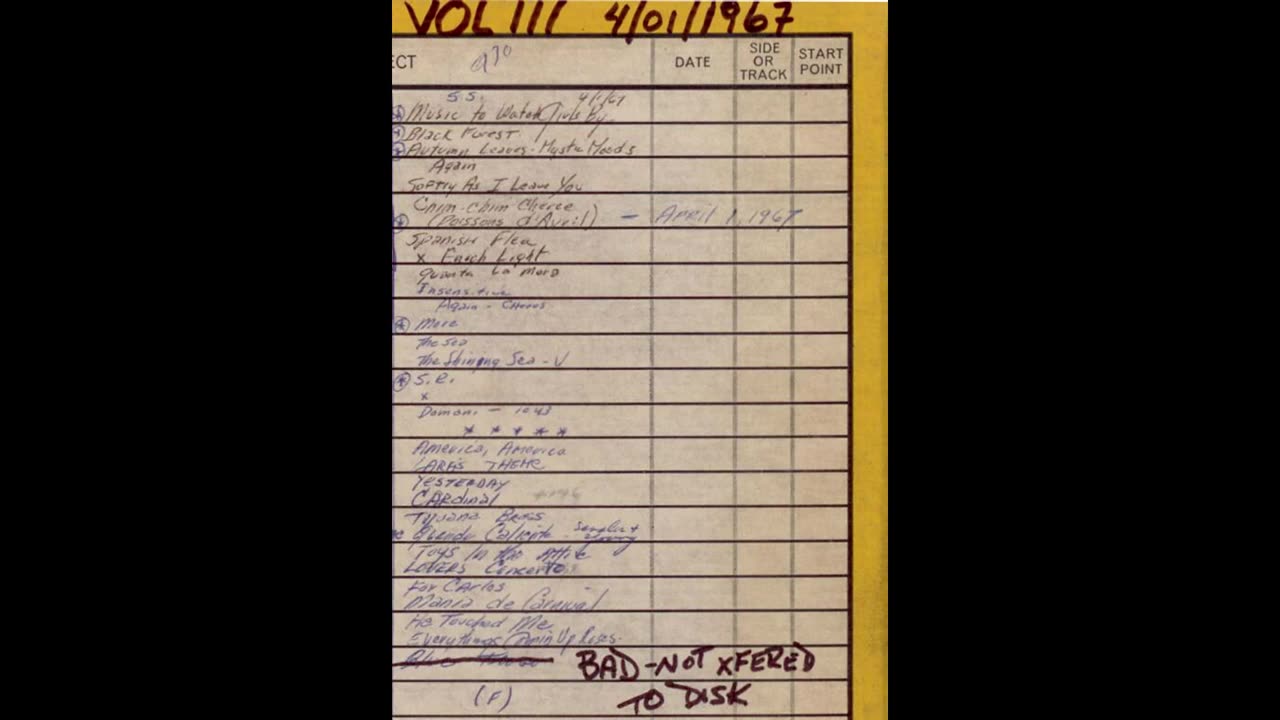 VOL III 4/01/1967
ECT 930 DATE SIDE OR TRACK START POINT
S S. 4/1/67
Music to Watch Girls By
Black Forest
Autumn Leaves - Mystic Moods
Again
Softly As I Leave You
Chim-Chim Cheree
(Poissons d'Avril) - APRIL 1, 1967
Spanish Flea
x Enoch Light
Quanta La
Insensitive
Again -
More
The Sea
The Shining Sea - V
S.E.
x
Domani - 1048
* * * * *
America, America
LARA'S THEME
YESTERDAY
CARdinal
Tijuana Brass
Caliente
Toys In the Attic
LOVERS Concerto
For CARlos
Mania de Carnival
He Touched Me
Everythings Comin Up Roses.
BAD-NOT XFERED
(F) TO DISK